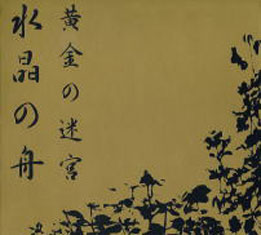 黄金の迷宮
水晶の舟